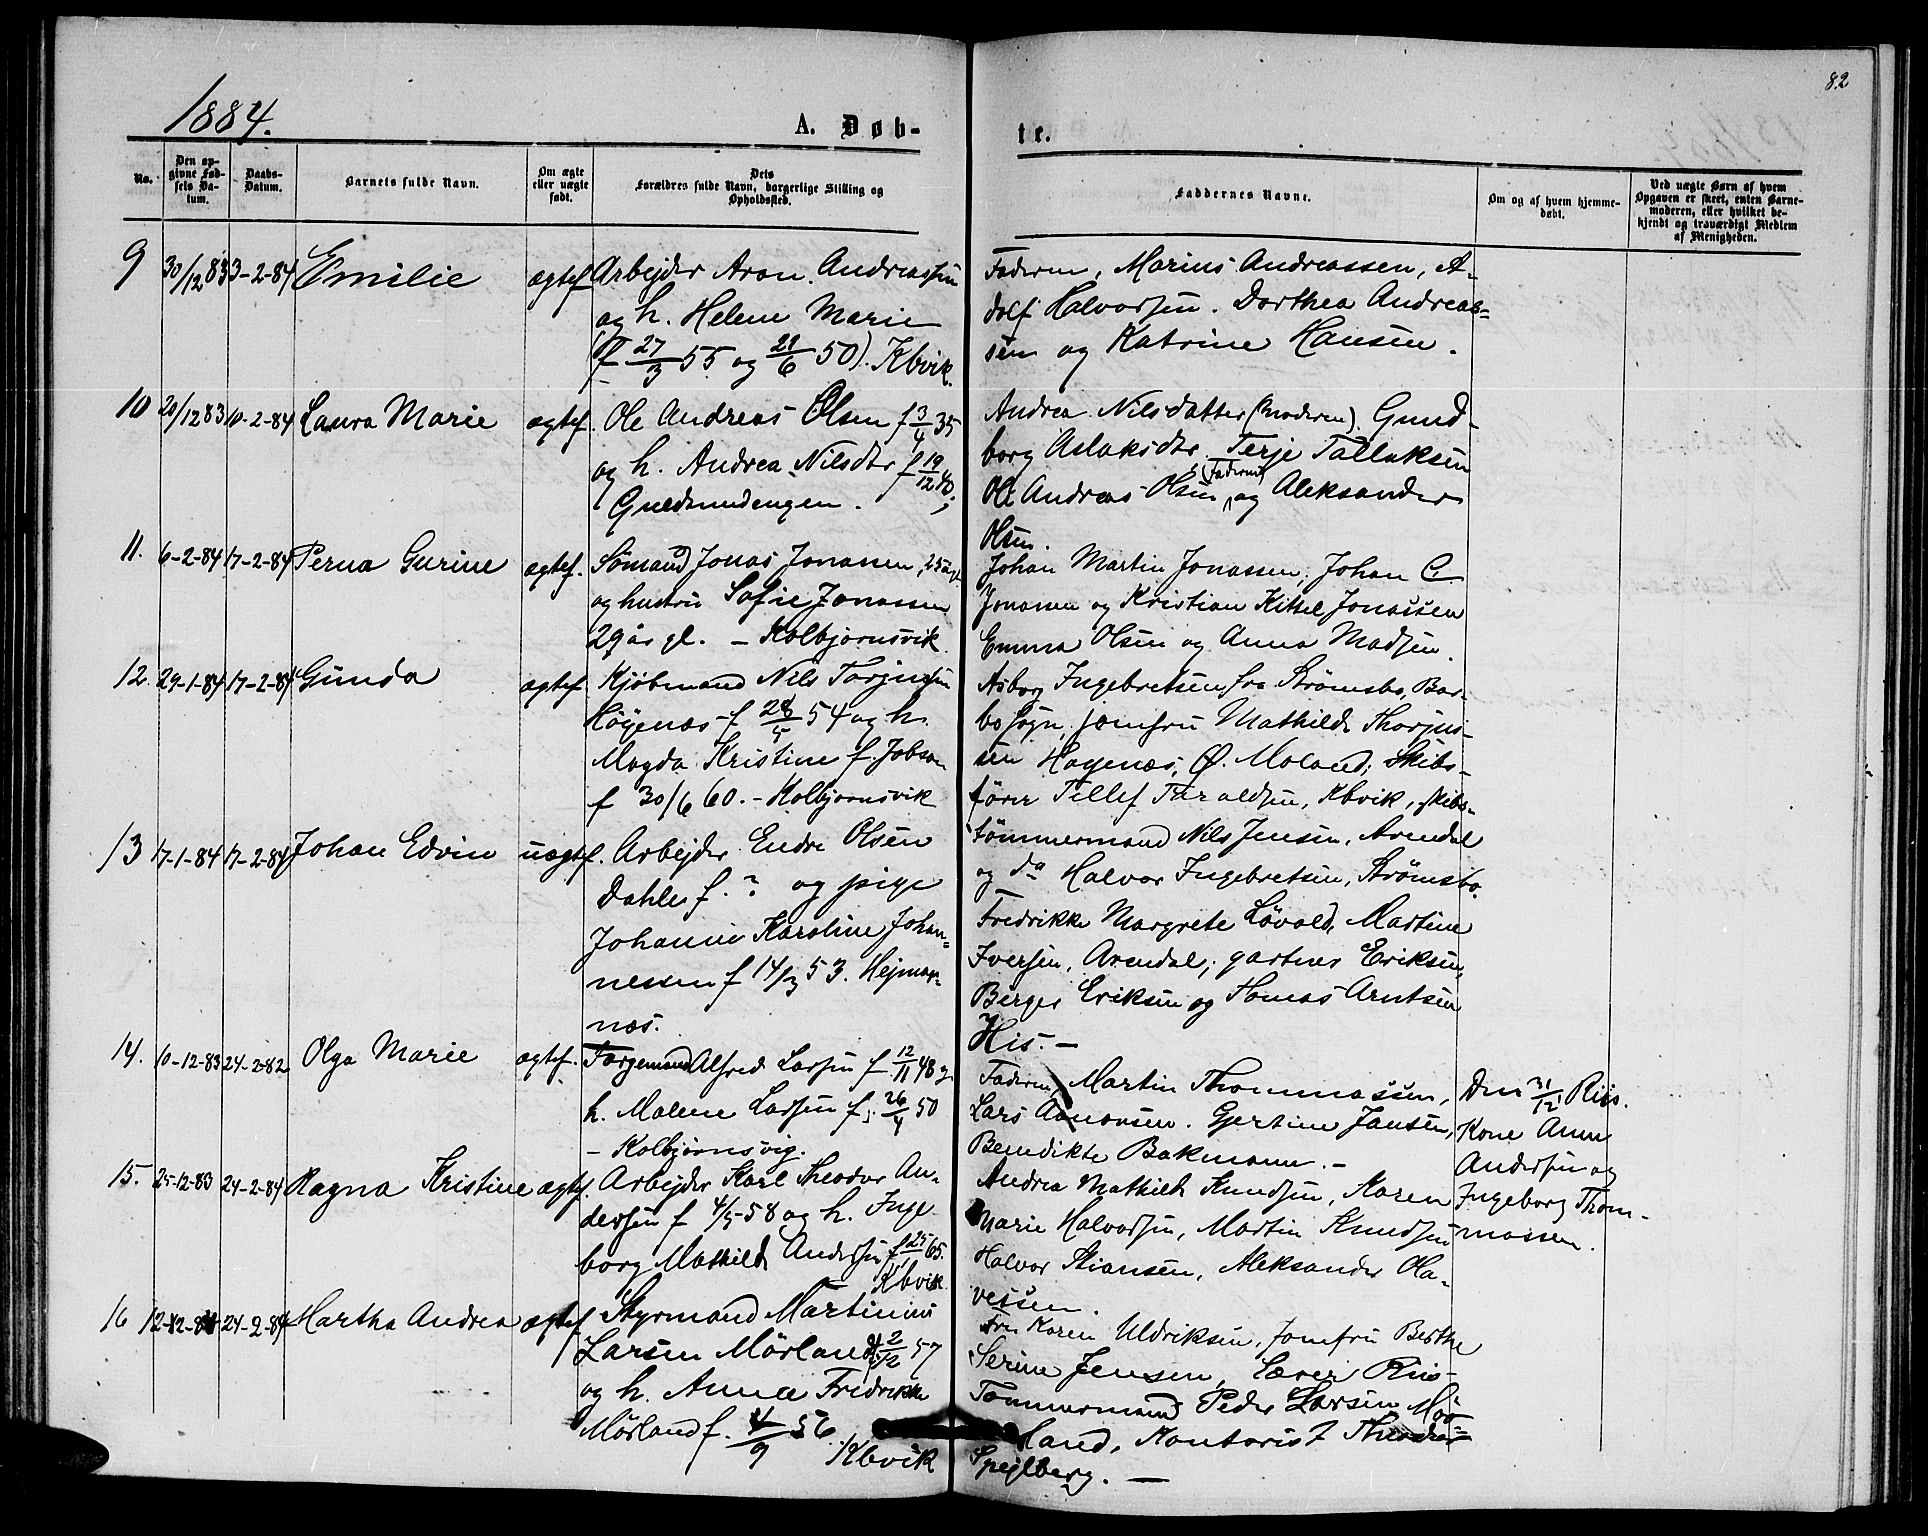 82
1884.
A. Døb-
te.
No.
Den op-
givne Fød-
sels Da-
tum.
Daabs-
Datum.
Barnets fulde Navn.
Om ægte
eller uægte
født.
Dets
Forældres fulde Navn, borgerlige Stilling og
Opholdssted.
Faddernes Navne.
Om og af hvem hjemme-
døbt.
Ved uægte Børn af hvem
Opgaven er skeet, enten Barne-
moderen, eller hvilket be-
kjendt og troværdigt Medlem
af Menigheden.
9 30/12 83 3-2-84 Emilie ægtef Arbejder Aron Andreassen
og h. Helene Marie
(f 27/3 55 og 29/6 50). Kbvik.
Faderen, Marius Andreassen, A-
dolf Halvorsen. Dorthea Andreas-
sen og Katrine Hansen.
10 20/12 83 10-2-84 Laura Marie ægtef. Ole Andreas Olsen f 3/4 35
og h. Andrea Nilsdtr f 19/12 40;
Guldsmedengen.
Andrea Nilsdatter (moderen). Gund-
borg Aslaksdtr, Terje Tallaksen
Ole Andreas Olsen (Faderen) og Aleksander
Olsen.
11. 6-2-84 17-2-84 Perna Gurine ægtef. Sømand Jonas Jonassen, 25 år gl
og hustru Sofie Jonassen
29 år gl. - Kolbjørnsvik
Johan Martin Jonassen, Johan C.
Jonassen og Kristian Kittel Jonassen
Emma Olsen og Anna Madsen.
12. 29-1-84 17-2-84 Gunda ægtef Kjøbmand Nils Torjussen
Høgenæs f 28/5 54 og h.
Magda Kristine f. Jobsen
f 30/6 60. - Kolbjørnsvik
Asborg Ingebretsen fra Strømsbo, Bar-
bo sogn, jomfru Mathilde Thorjus-
sen Hagenæs, Ø. Moland; Skibs-
fører Tellef Taraldsen, Kbvik, skibs-
tømmermand Nils Jensen, Arendal
og do Halvor Ingebretsen, Strømsbo.
13 17-1-84 17-2-84 Johan Edvin uægtef. Arbejder Endre Olsen
Dahle f. ? og pige
Johanne Karoline Johan-
nessen f 14/3 53. Hejmar-
næs.
Fredrikke Margrete Løvold, Martine
Iversen, Arendal; gartner Eriksen,
Berger Eriksen og Tomas Arntsen
His. -
14. 10-12-83 24-2-82 Olga Marie ægtef. Færgemand Alfred Larsen f 12/11 48 og
h. Malene Larsen f. 26/4 50
- Kolbjørnsvig.
Faderen, Martin Thommassen,
Lars Aanonsen. Gjertine Jansen,
Benedikte Bakmann. -
Den 31/12 Riis.
Kone Anne
Andersen og
Ingeborg Thom-
massen.
15. 25-12-83 24-2-84 Ragna Kristine ægtef. Arbejder Karl Theodor An-
dersen f 4/5-58 og h. Inge-
borg Mathilde Andersen f 25/1 65.
Kbvik
Andrea Mathilde Knudsen, Karen
Marie Halvorsen, Martin Knudsen
Halvor Stiansen, Aleksander Ola-
vessen.
16 24-2-84 Martha Andrea ægtef Styrmand Martinius
Larsen Mørland f 2/12 57
og h. Anna Fredrikke
Mørland f. 4/9 56
Kbvik
Fru Karen Uldriksen, Jomfru Berthe
Serine Jensen, Lærer Riis
Tømmermand Peder Larsen Mør-
land, Kontorist Theodor
Spejlberg. -